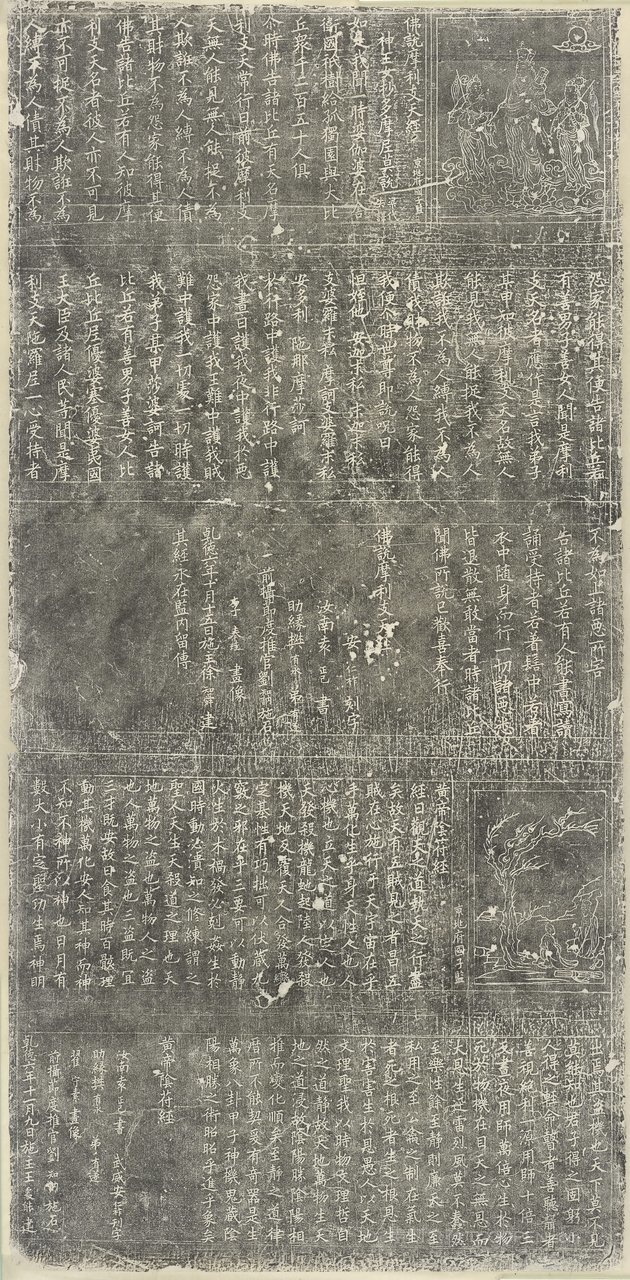 佛說摩利支天經
京地府國子監
神王女抄多摩尼莫說
如是我聞一時婆伽婆在舍
衛國祇樹給孤獨園與大比
丘眾千二百五十人俱
尒時佛告諸比丘有天名摩
利支天常行日前彼摩利支
天無人能見無人能捉不為
人欺誑不為人縛不為人債
其財物不為怨家能得其便
佛告諸比丘若有人知彼摩
利支天名者彼人亦不可見
亦不可捉不為人欺誑不為
人縛不為人債其財物不為
怨家能得其便告諸比丘若
有善男子善女人聞是摩利
支天名者應作是言我弟子
某甲知彼摩利支天名故無人
能見我無人能捉我不為人
欺誑我不為人縛我不為人
債我財物不為人怨家能得
我便尒時世尊即說呪曰
怛姪他 安迦末秣 宗迦末秣
支婆羅末秣 摩訶支婆羅末秣
安多利 陁那摩莎訶
於行路中護我非行路中護
我晝日護我夜中護我於惡
怨家中護我王難中護我賊
難中護我一切處一切時護
我弟子某甲莎婆訶告諸
比丘若有善男子善女人比
丘比丘尼優婆塞優婆夷國
王大臣及諸人民等聞是摩
利支天陁羅尼一心受持者
不為如上諸惡所害
告諸比丘若有人能書寫讀
誦受持者若著髻中若著
衣中隨身而行一切諸惡悉
皆退散無敢當者時諸比丘
聞佛所說已歡喜奉行
佛說摩利支天經
安 刻字
汝南袁 正己 書
助緣 弟
前攝節度推官劉 知訥 施石
李 奉珪 畫像
乾德六年十一月十五日施主徐 建
其經永在監內留傳
黃帝陰符經
京地府國子監
經曰觀天之道執天之行盡
矣故天有五賊見之者昌五
賊在心施行于天宇宙在乎
手萬化生乎身天性人也人
心機也立天之道以定人也
天發殺機龍虵起陸人發殺
機天地反覆天人合發萬變
定基性有巧拙可以伏藏九
竅之邪在乎三要可以動靜
火生於木禍發必剋姦生於
國時動必潰知之修鍊謂之
聖人天生天殺道之理也天
地萬物之盜也萬物人之盜
也人萬物之盜也三盜既宜
三才既安故曰食其時百骸理
動其機萬化安人知其神而神
不知不神所以神也日月有
數大小有定聖功生焉神明
出焉其盜機也天下莫不見
莫能知也君子得之固躬小
人得之輕命瞽者善聽聾者
善視絕利一源用師十倍三
反晝夜用師萬倍心生於物
死於物機在目天之無恩而
大恩生迅雷烈風莫不蠢然
至樂性餘至靜則廉天之至
私用之至公禽之制在氣生
者死之根死者生之根恩生
於害害生於恩愚人以天地
文理聖我以時物文理哲自
然之道靜故天地萬物生天
地之道浸故陰陽勝陰陽相
推而變化順矣至靜之道律
曆所不能契爰有奇器是生
萬象八卦甲子神機鬼藏陰
陽相勝之術昭昭乎進乎象矣
黃帝陰符經
汝南袁正己書 武威安 刻字
助緣 弟
翟守素畫像
前攝節度推官劉知訥施石
乾德六年十一月九日施主王 建